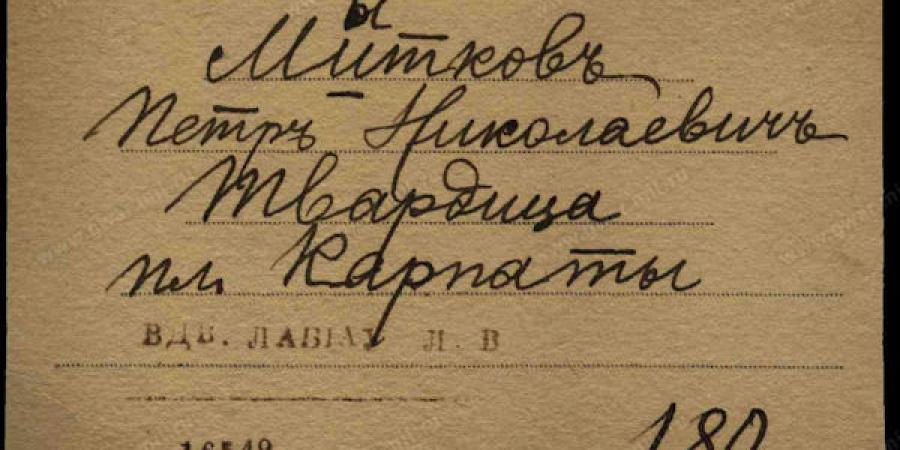 ы
Митковъ
Петръ Николаевичъ
Твардица
пл. Карпаты
ВДВ. ЛАБІАУ Л. В
16549
180